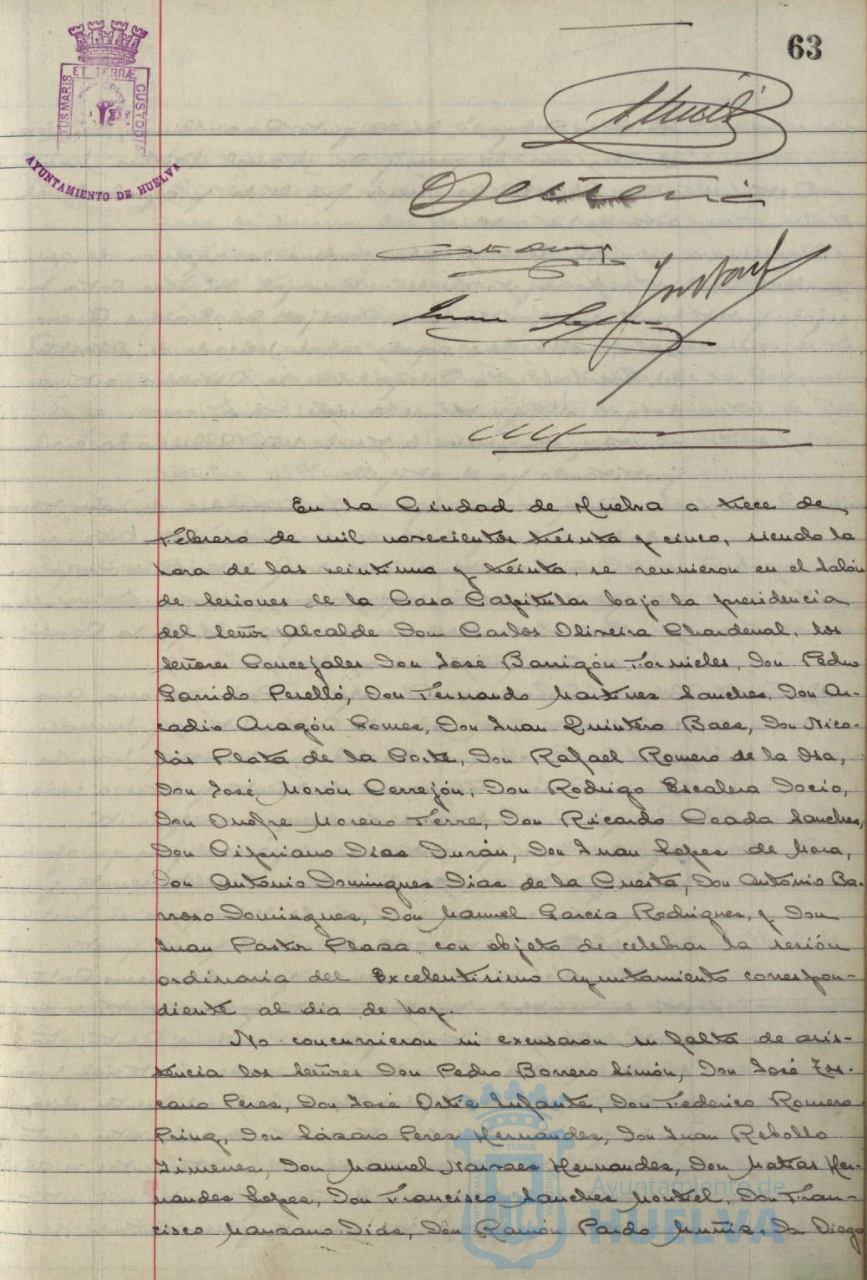 63
PORTUS MARIS
ET TERRÆ
CUSTODIA
AYUNTAMIENTO DE HUELVA
En la Ciudad de Huelva a trece de
Febrero de mil novecientos treinta y cinco, siendo la
hora de las veintiuna y treinta, se reunieron en el Salón
de Sesiones de la Casa Capitular bajo la presidencia
del Señor Alcalde Don Carlos Oliveira Chardenal, los
Señores Concejales Don José Barrigón Fornieles, Don Pedro
Garrido Perelló, Don Fernando Martines Sanches, Don Ar-
cadio Aragón Gomes, Don Juan Quintero Baes, Don Nico-
lás Plata de la Corte, Don Rafael Romero de la Osa,
Don José Morón Cerrejón, Don Rodrigo Escalera Socio,
Don Onofre Moreno Ferre, Don Ricardo Ceada Sanches,
Don Cipriano Dias Durán, Don Juan Lopes de Mora,
Don António Domingues Dias de la Cuesta, Don António Ba-
rroso Domingues, Don Manuel Garcia Rodrigues, y Don
Juan Pastor Plasa con objeto de celebrar la sesión
ordinaria del Excelentisimo Ayuntamiento correspon-
diente al dia de hoy.
No concurrieron ni excusaron su falta de asis-
tencia los Señores Don Pedro Borrero Limón, Don José
Peres, Don José Ortis Infante, Don Federico Romero
Don Lázaro Peres Hernándes, Don Juan Rebollo
Jimenes, Don Manuel Narvaes Hernandes, Don Matías Her-
nandes Lopes, Don Francisco Sanches Montiel, Don Fran-
cisco Manzano Dias, Don Ramón Pardo Muñis, Don Diego
Ayuntamiento de
HUELVA